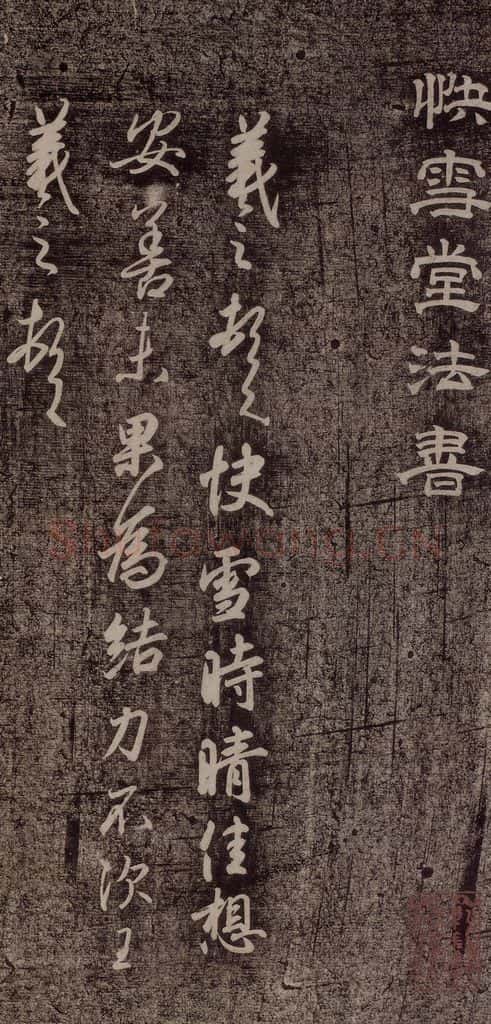 快雪堂法書
羲之頓首快雪時晴佳想
安善未果為結力不次王
羲之頓首